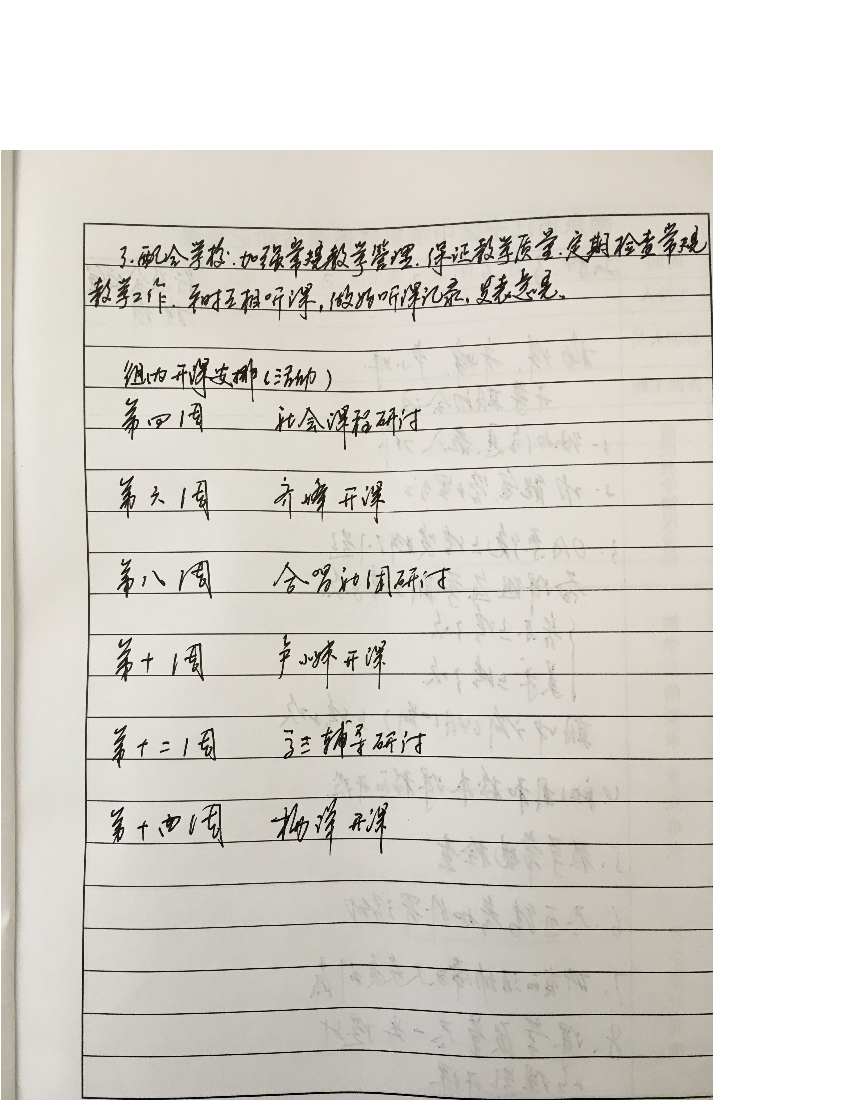 3.配合学校.加强常规教学管理.保证教学质量.定期检查常规
教学工作.平时互相听课,做好听课记录,发表意见。
组内开课安排(活动)
第四周 社会课程研讨
第六周 齐峰开课
第八周 合唱社团研讨
第十周 卢小妹开课
第十二周 辅导研讨
第十四周 杨洋开课